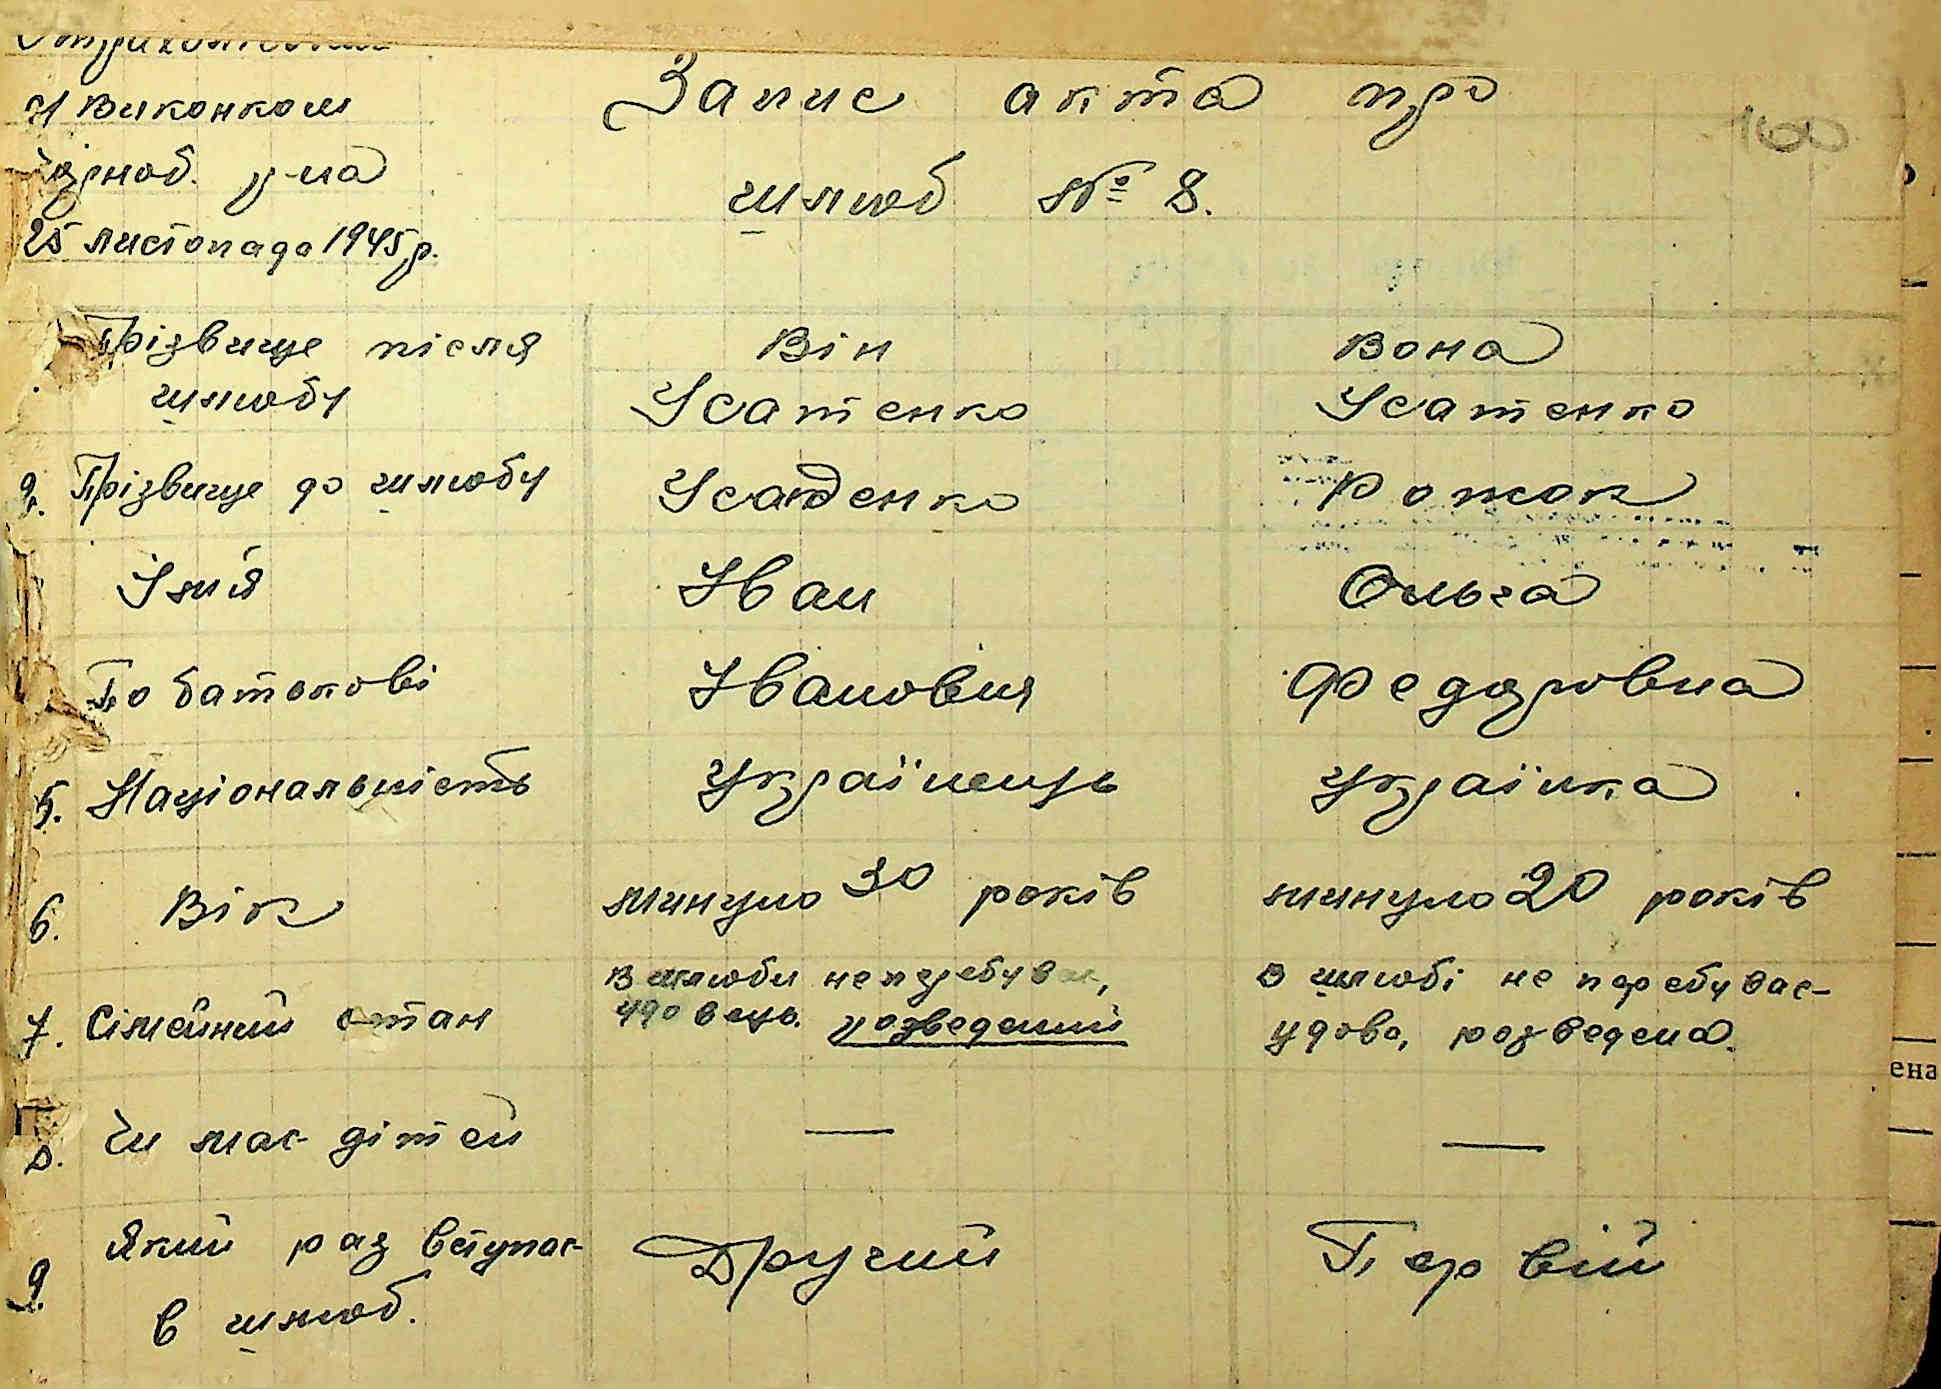 Виконком
25 листопада 1945 р.
Запис акта про
шлюб № 8.
160
Прізвище після
шлюбу
Він
Вона
Усатенко
Усатенко
2. Прізвище до шлюбу
Усатенко
Рожок
Імя
Іван
Ольга
По батькові
Іванович
Федоровна
5. Національність
Українець
Українка
6. Вік
минуло 30 років
минуло 20 років
7. Сімейний стан
В шлюби не перебуває,
удовець. розведений
В шлюбі не перебуває
удова, розведена.
8. Чи має дітей
—
—
9. Який раз вступає
в шлюб.
Другий
Первій
ена